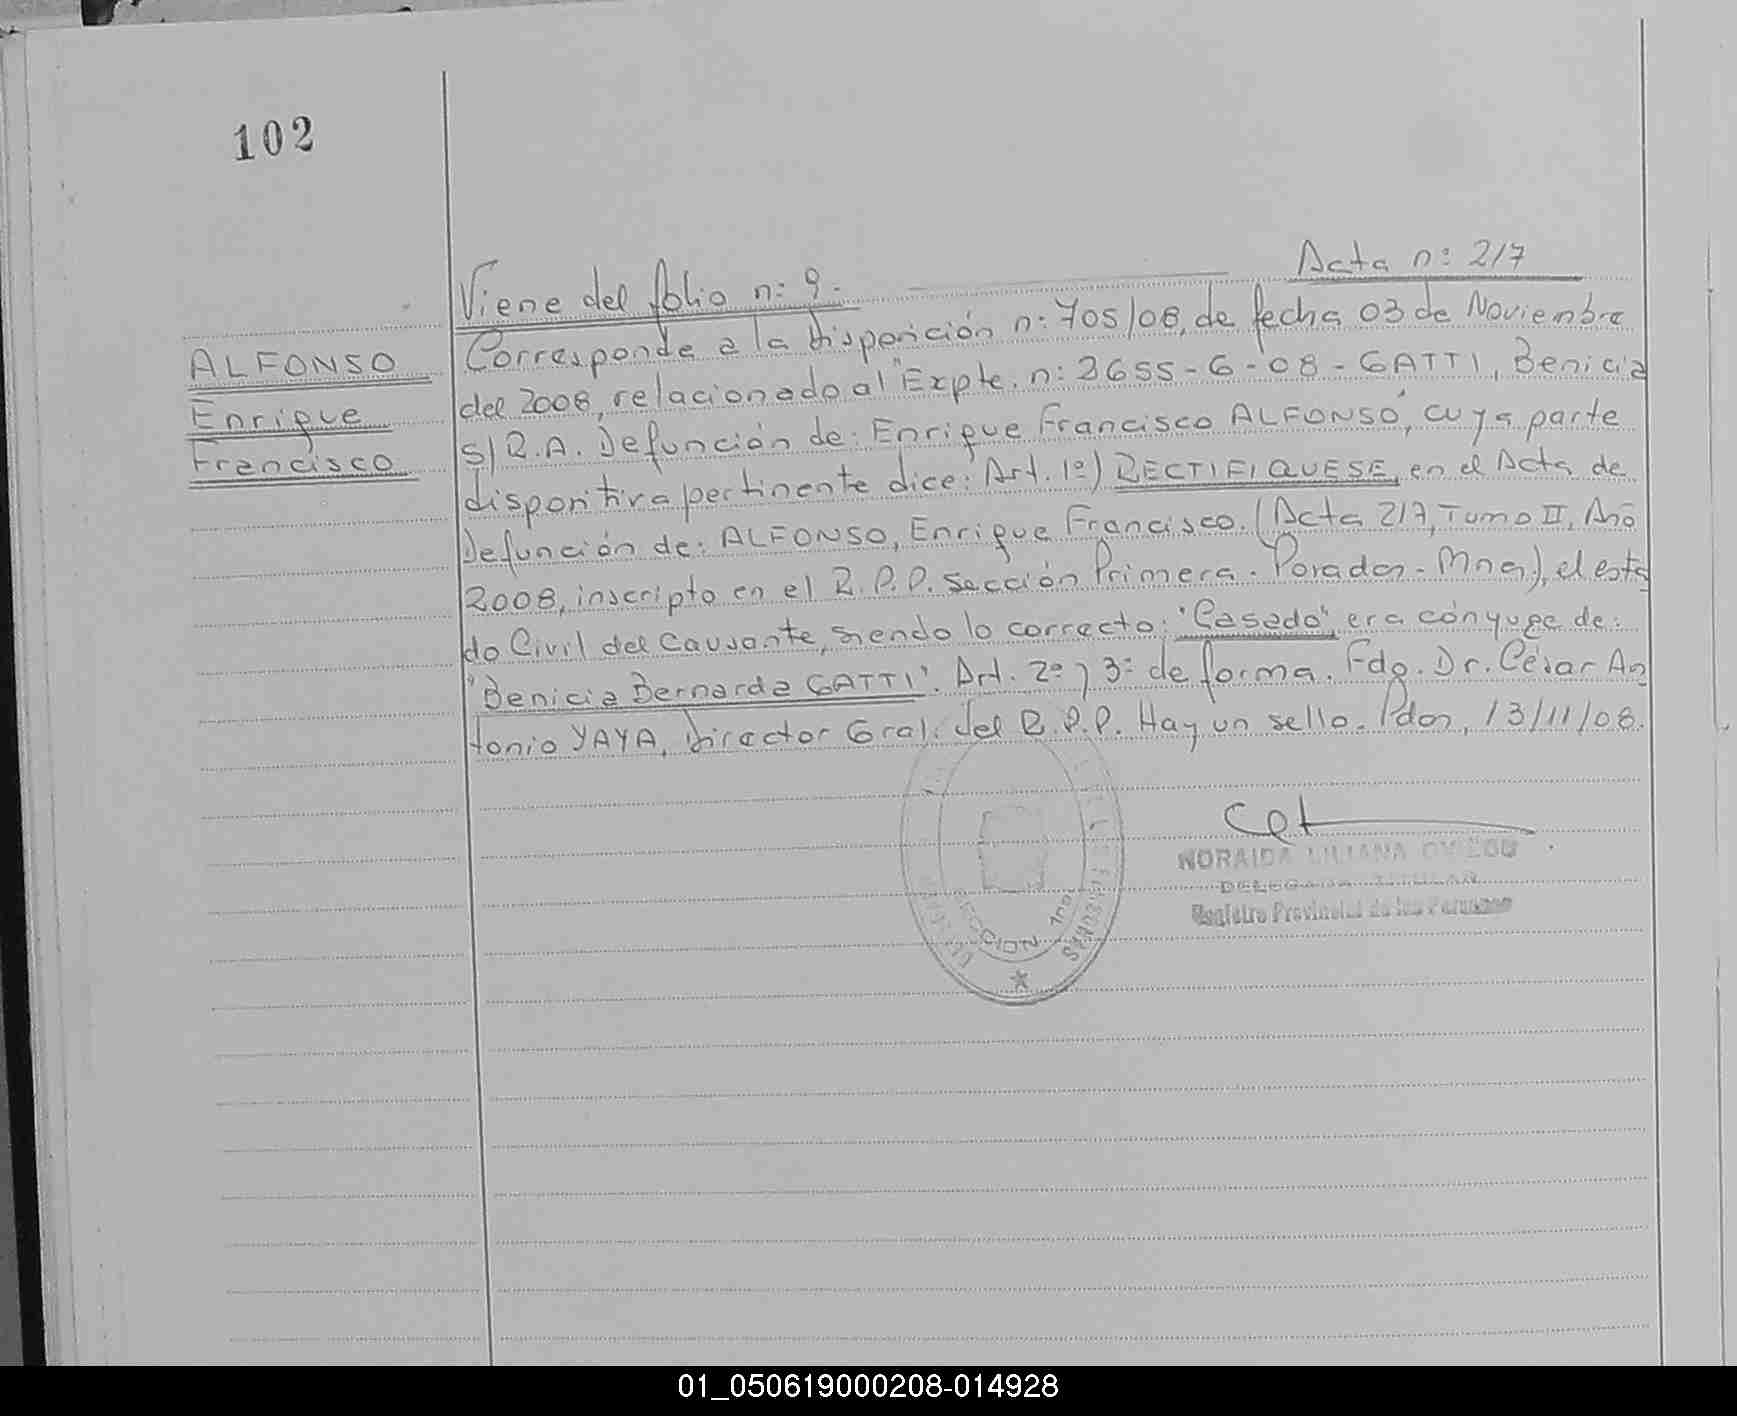 102
Acta n: 217
Viene del folio n: 9.
ALFONSO
Enrique
Francisco
Corresponde a la Disposición n: 705/08, de fecha 03 de Noviembre
del 2008, relacionado al "Expte. n: 3655-G-08-GATTI, Benicia
S/R.A. Defunción de: Enrique Francisco ALFONSO", cuya parte
dispositiva pertinente dice: Art. 1º) RECTIFIQUESE, en el Acta de
Defunción de: ALFONSO, Enrique Francisco. (Acta 217, Tomo II, Año
2008, inscripto en el R.P.P. Sección Primera - Posadas - Mnes), el esta
do Civil del Causante, siendo lo correcto: "Casado", era cónyuge de:
"Benicia Bernarda GATTI". Art. 2º y 3º de forma. Fdo. Dr. César An
tonio YAYA, Director Gral. del R.P.P. Hay un sello. Pdas, 13/11/08.
NORAIDA LILIANA OVIEDO
DELEGADA TITULAR
Registro Provincial de las Personas
SECCION 1ra
01_050619000208-014928